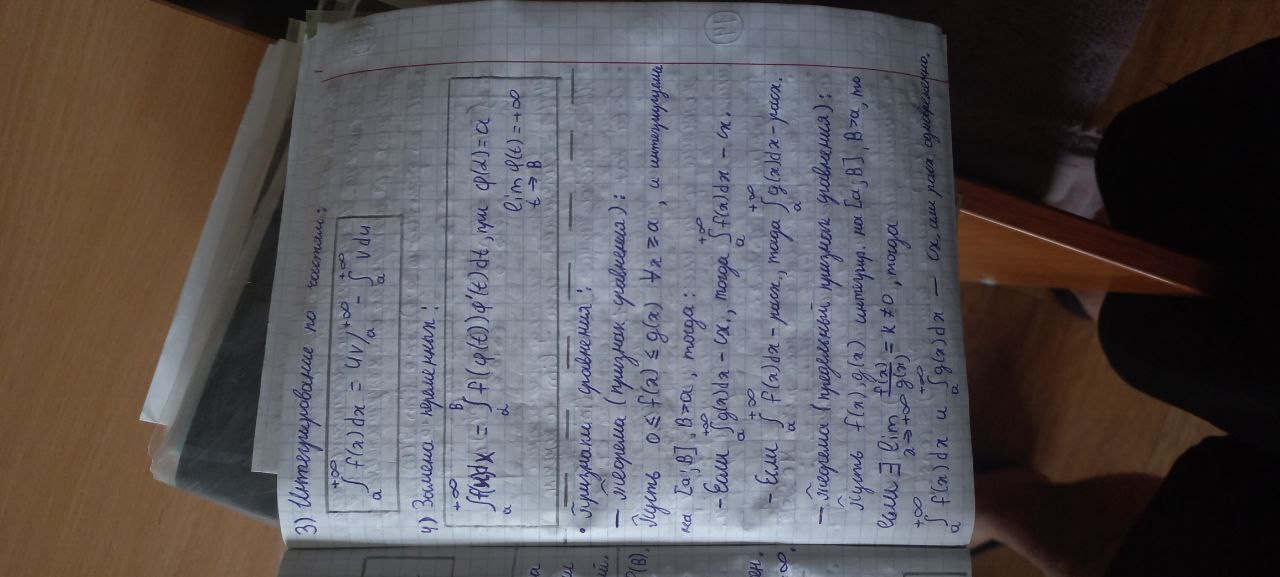 3) Интегрирование по частям:
∫ₐ⁺∞ f(x)dx = UV|ₐ⁺∞ - ∫ₐ⁺∞ V du
4) Замена переменных:
∫ₐ⁺∞ f(x)dx = ∫_α^β f(φ(t))φ'(t)dt, при φ(α)=a
lim φ(t)=+∞
t→β
• Признаки сравнения:
— Теорема (признак сравнения):
Пусть 0≤f(x)≤g(x) ∀x≥a, и интегрируема
на [a;B], B>a, тогда:
- Если ∫ₐ⁺∞ g(x)dx - сх., тогда ∫ₐ⁺∞ f(x)dx - сх.
- Если ∫ₐ⁺∞ f(x)dx - расх., тогда ∫ₐ⁺∞ g(x)dx - расх.
— Теорема (предельный признак сравнения):
Пусть f(x), g(x) интегрир. на [a;B], B>a, то
если ∃ lim f(x)/g(x) = k ≠ 0, тогда
x→+∞
∫ₐ⁺∞ f(x)dx и ∫ₐ⁺∞ g(x)dx — сх. или расх. одновременно.